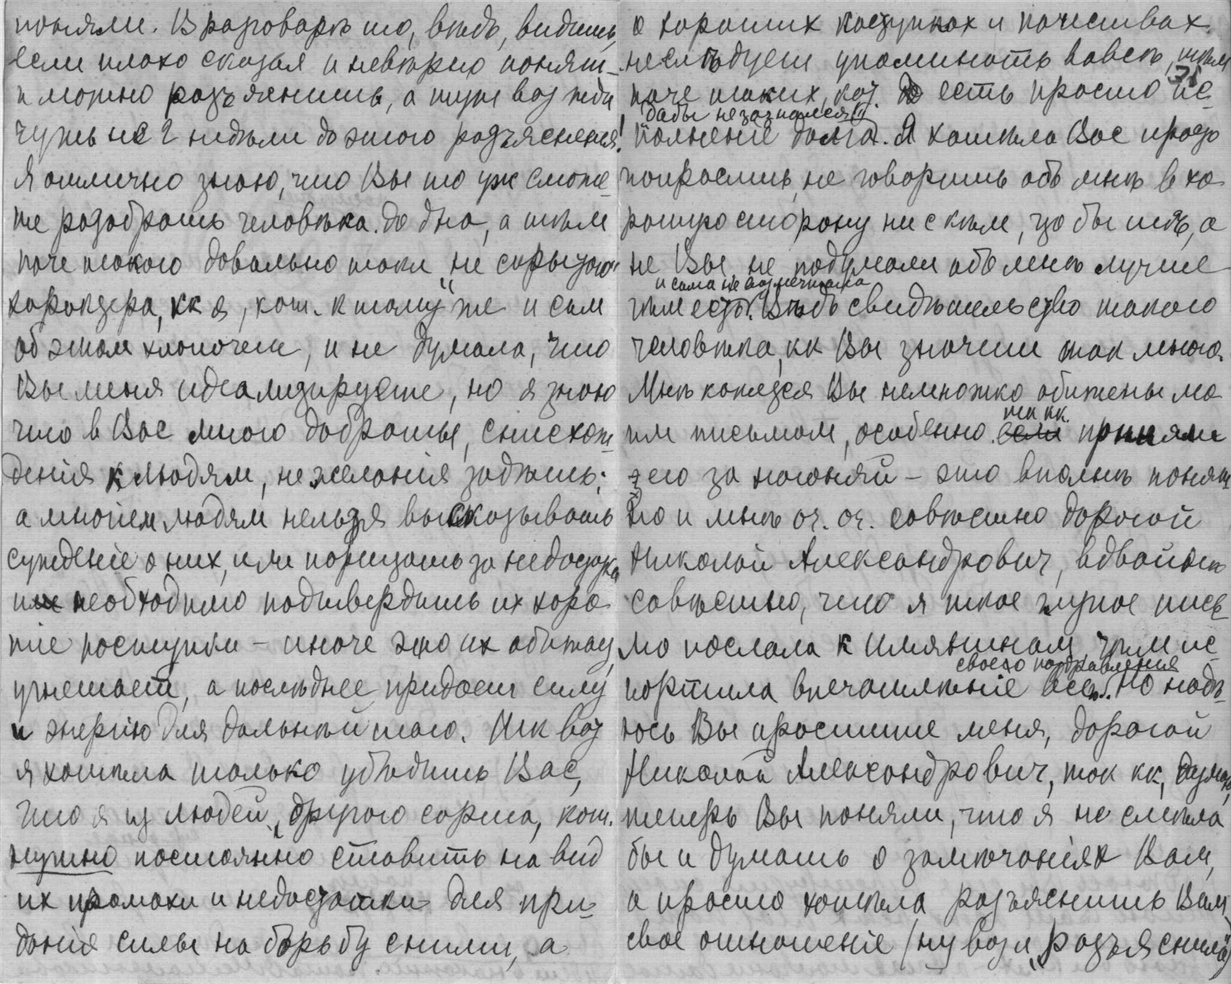 поняли. В разговоре то, ведь, видишь,
если плохо сказал и неверно понят-
и можно разъяснить, а тут вот жди
чуть не 2 недели до этого разъясненья!
Я отлично знаю, что Вы то уж сможе-
те разобрать человека до дна, а тѣм
паче такого довольно таки „не скрытого"
характера, кк я, кот. к тому же и сам
об этом хлопочет, и не думала, что
Вы меня идеализируете, но я знаю
что в Вас много доброты, снисхож-
денія к людям, нежеланія задѣть;
а многим людям нельзя высказывать
сужденіе о них, или порицать за недостатки
необходимо подтвердить их хоро-
шіе поступки – иначе это их обижает,
угнетает, а последнее придает силу
и энергію для дальнѣйшаго. Так вот
я хотѣла только убѣдить Вас,
что я из людей „другого сорта", кот.
нужно постоянно ставить на вид
их промахи и недостатки для при-
данія силы на борьбу с ними, а
о хороших поступках и качествах
не слѣдует упоминать вовсе, тѣм
паче таких, кот. есть просто ис-
дабы не зазнался!
полненіе долга. Я хотѣла Вас просто
попросить, не говорить обо мнѣ в хо-
рошую сторону ни с кѣм, что бы тѣ, а
не Вы, не подумали обо мнѣ лучше
и сама не возмечтала
чѣм есть. Вѣдь свидѣтельство такого
человѣка, кк Вы значит так много.
Мнѣ кажется Вы немножко обижены мо-
тк кк
им письмом, особенно если приняли
его за нагоняй – это вполнѣ понят
но и мнѣ оч. оч. совѣстно дорогой
Николай Александрович, вдвойнѣ
совѣстно, что я такое глупое пись
мо послала к имянинам, чѣм ис-
своего поздравленія
портила впечатлѣніе всею. Но надѣ-
юсь Вы простите меня, дорогой
Николай Александрович, так кк, думаю
теперь Вы поняли, что я не смѣла
бы и думать о замѣчаніях Вам,
а просто хотѣла разъяснить Вам
свое отношеніе (ну вот и „разъяснила"